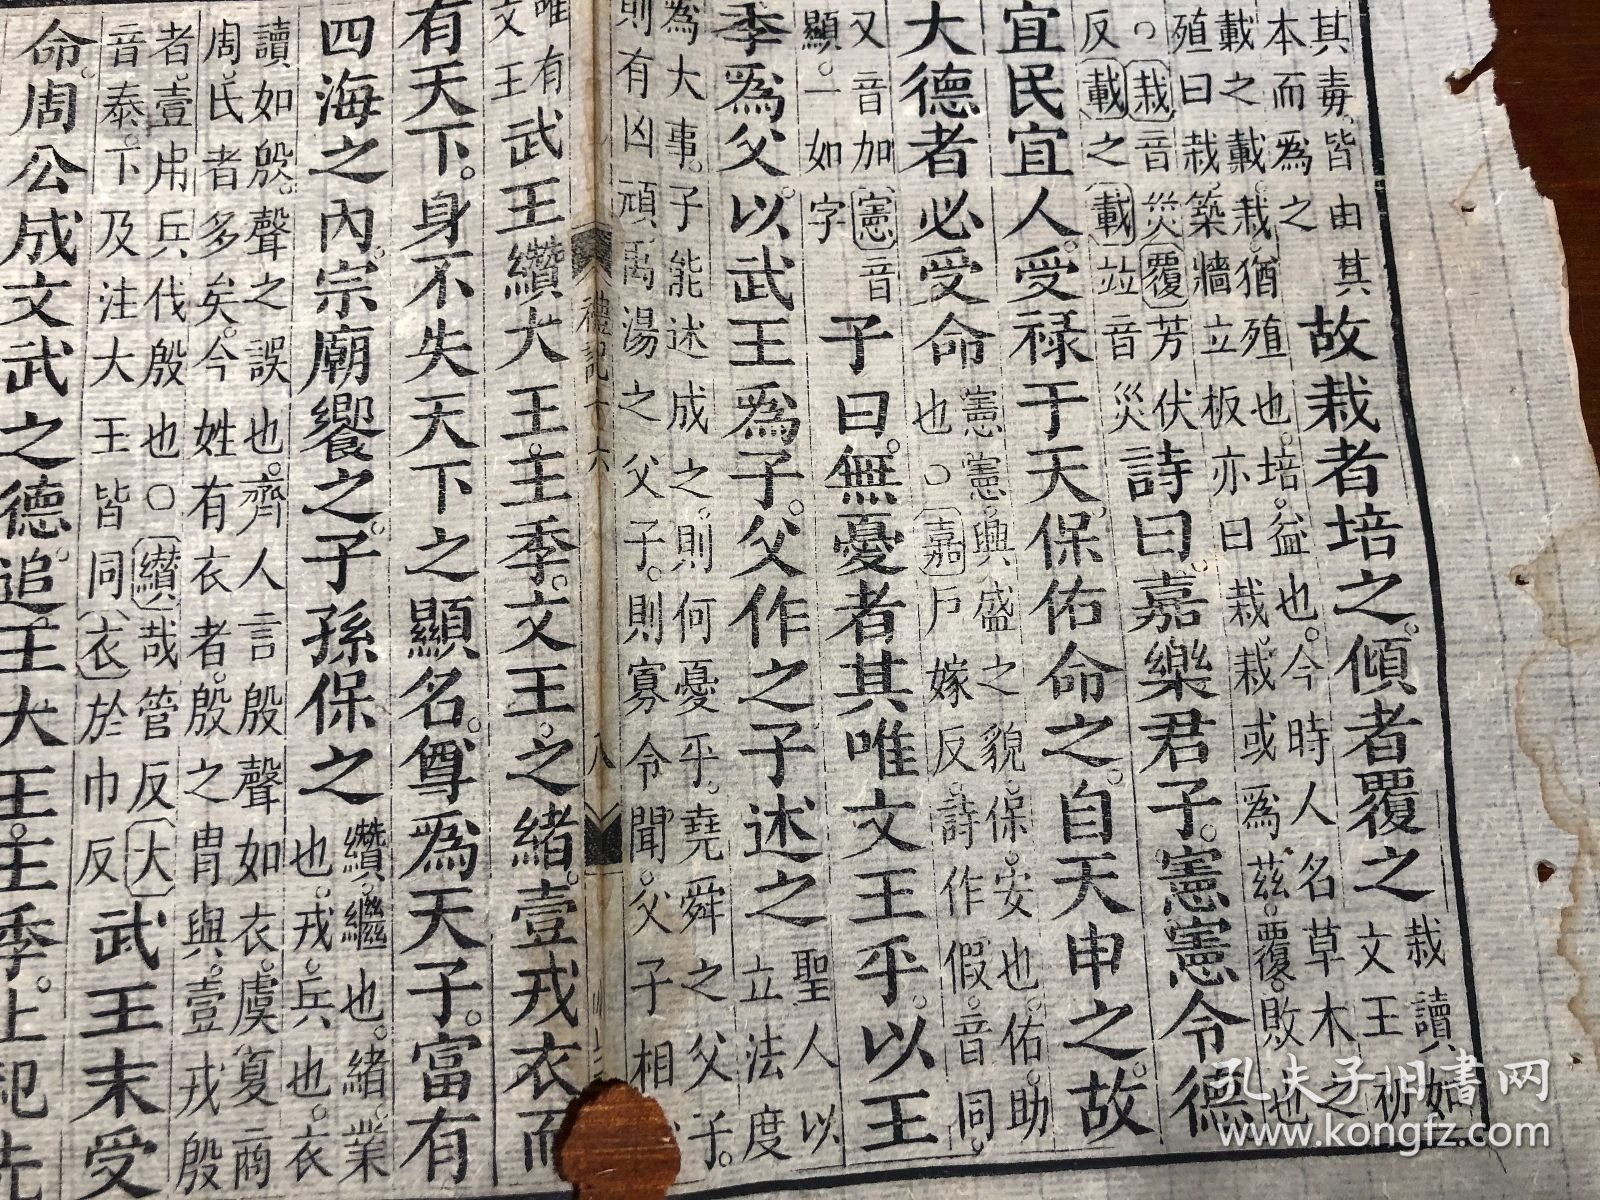 其毒皆由其
本而爲之
故栽者培之傾者覆之
栽讀如
文王初
載之載栽猶殖也培益也今時人名草木之
殖曰栽築牆立板亦曰栽栽或爲茲覆敗也
○栽音災覆芳伏
反載之載竝音災
詩曰嘉樂君子憲憲令德
宜民宜人受祿于天保佑命之自天申之故
大德者必受命
憲憲興盛之貌保安也佑助
也○嘉戶嫁反詩作假音同
又音加憲音
顯一如字
子曰無憂者其唯文王乎以王
季爲父以武王爲子父作之子述之
聖人以
立法度
爲大事子能述成之則何憂乎堯舜之父子
則有凶頑禹湯之父子則寡令聞父子相
禮記十六
八
唯有
文王
武王纘大王王季文王之緒壹戎衣而
有天下身不失天下之顯名尊爲天子富有
四海之內宗廟饗之子孫保之
纘繼也緒業
也戎兵也衣
讀如殷聲之誤也齊人言殷聲如衣虞夏商
周氏者多矣今姓有衣者殷之冑與壹戎殷
者壹用兵伐殷也○纘哉管反大
音泰下及注大王皆同衣於巾反
武王末受
命周公成文武之德追王大王王季上祀先
孔夫子旧書网
www.kongfz.com